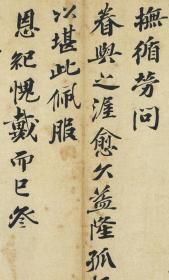 撫循勞問
眷與之渥愈久益隆孤
以堪此佩服
恩紀愧戴而已參